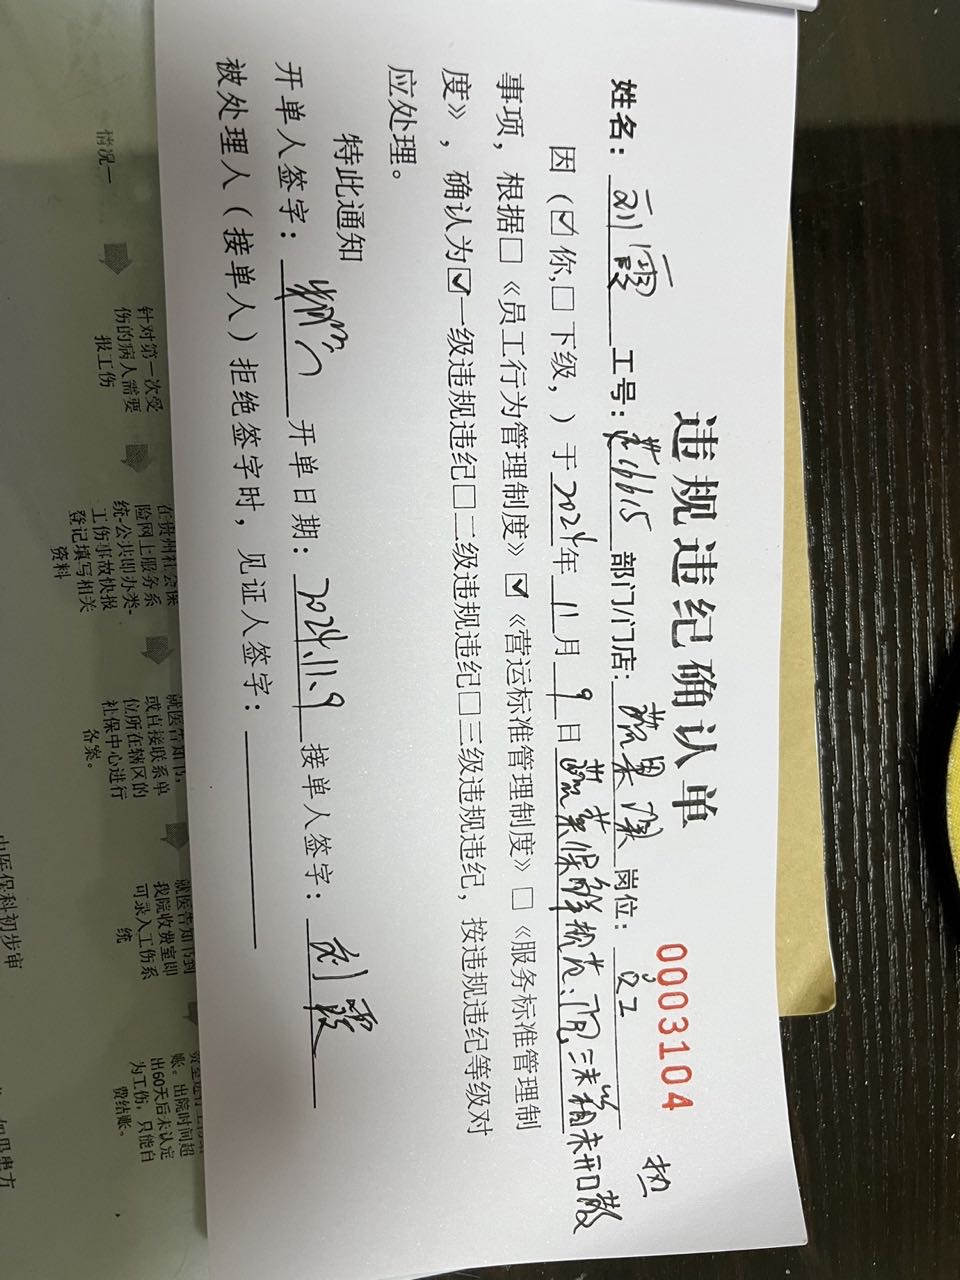 违规违纪确认单
0003104
姓名：刘霞 工号：16615 部门/门店：蔬果课 岗位：员工
因（☑你，□下级，）于2024年11月9日蔬菜保鲜 未开口散
热
事项，根据□《员工行为管理制度》☑《营运标准管理制度》□《服务标准管理制
度》，确认为☑一级违规违纪□二级违规违纪□三级违规违纪，按违规违纪等级对
应处理。
特此通知
开单人签字： 开单日期：2024.11.9 接单人签字：刘霞
被处理人（接单人）拒绝签字时，见证人签字：
情况一
针对第一次受
伤的病人需要
报工伤
在贵州社会保
险网上服务系
统-公共即办类-
工伤事故快报
登记填写相关
资料
就医告知书，
或直接联系单
位所在辖区的
社保中心进行
备案。
就医告知书到
我院收费室即
可录入工伤系
统
账。出院时间超
出60天后未认定
为工伤，只能自
费结账。
医保科初步审
如果患方